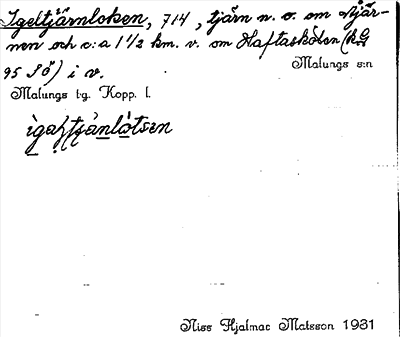 Igeltjärnloken, 714, tjärn n. o. om Stjär-
nen och c:a 1 1/2 km. v. om Haftaskölen (KG
95 SÖ) i v.
Malungs s:n
Malungs tg. Kopp. l.
Nils Hjalmar Matsson 1931